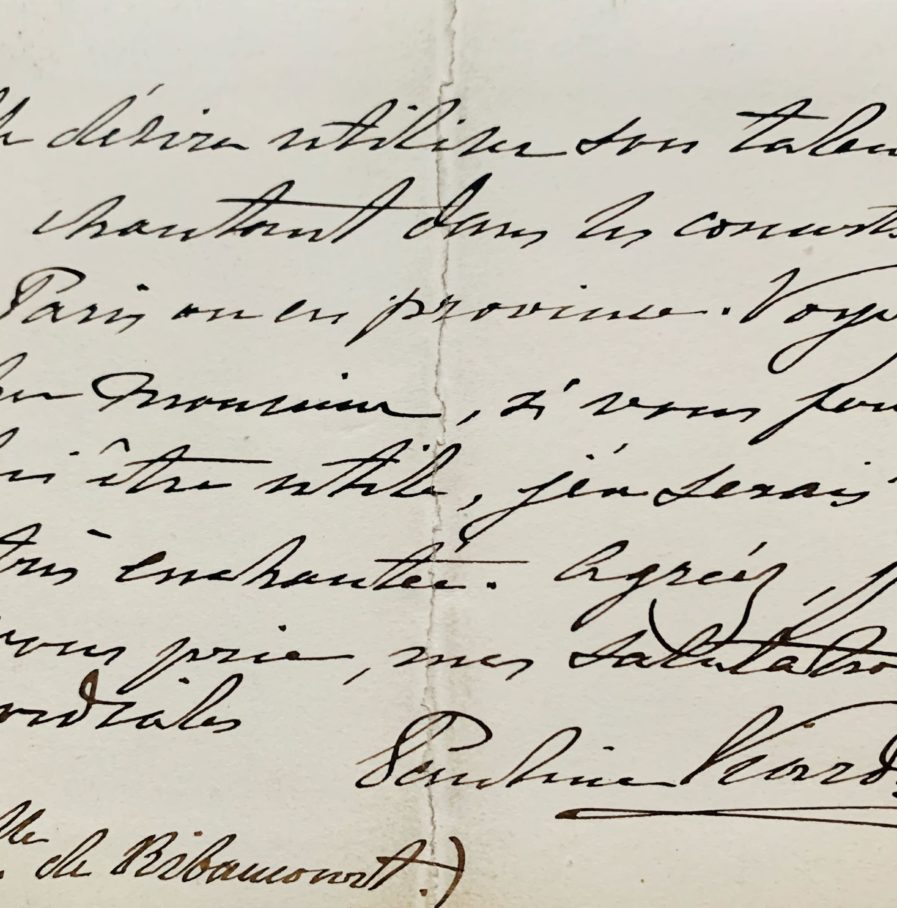 désire utiliser son talen
chantant dans les concerts
Paris ou en province. Voye
monsieur, si vous pou
être utile, j'en serais
très enchantée. Agréez, j
vous prie, mes salutatio
ordiales
Pauline Viard
lle de Ribaucourt.)